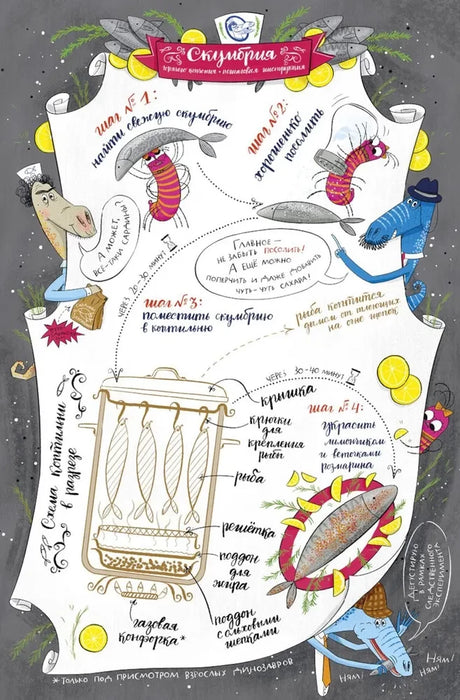 Скумбрия
горячего копчения • пошаговая инструкция
шаг №1:
найти свежую скумбрию
шаг №2:
хорошенько
посолить
А может,
всё-таки сардина?
Главное –
не забыть посолить!
А ещё можно
поперчить и даже добавить
чуть-чуть сахара!
через 20-30 минут
шаг №3:
поместить скумбрию
в коптильню
рыба коптится
дымом от тлеющих
на огне щепок
через 30-40 минут
Схема коптильни
в разрезе
крышка
крючки
для
крепления
рыбы
рыба
решётка
поддон
для
жира
поддон
с ольховыми
щепками
газовая
конфорка*
шаг №4:
украсить
лимончиком
и веточками
розмарина
Дегустирую
в рамках
следственного
эксперимента
Ням!
Ням!
Ням!
*Только под присмотром взрослых динозавров